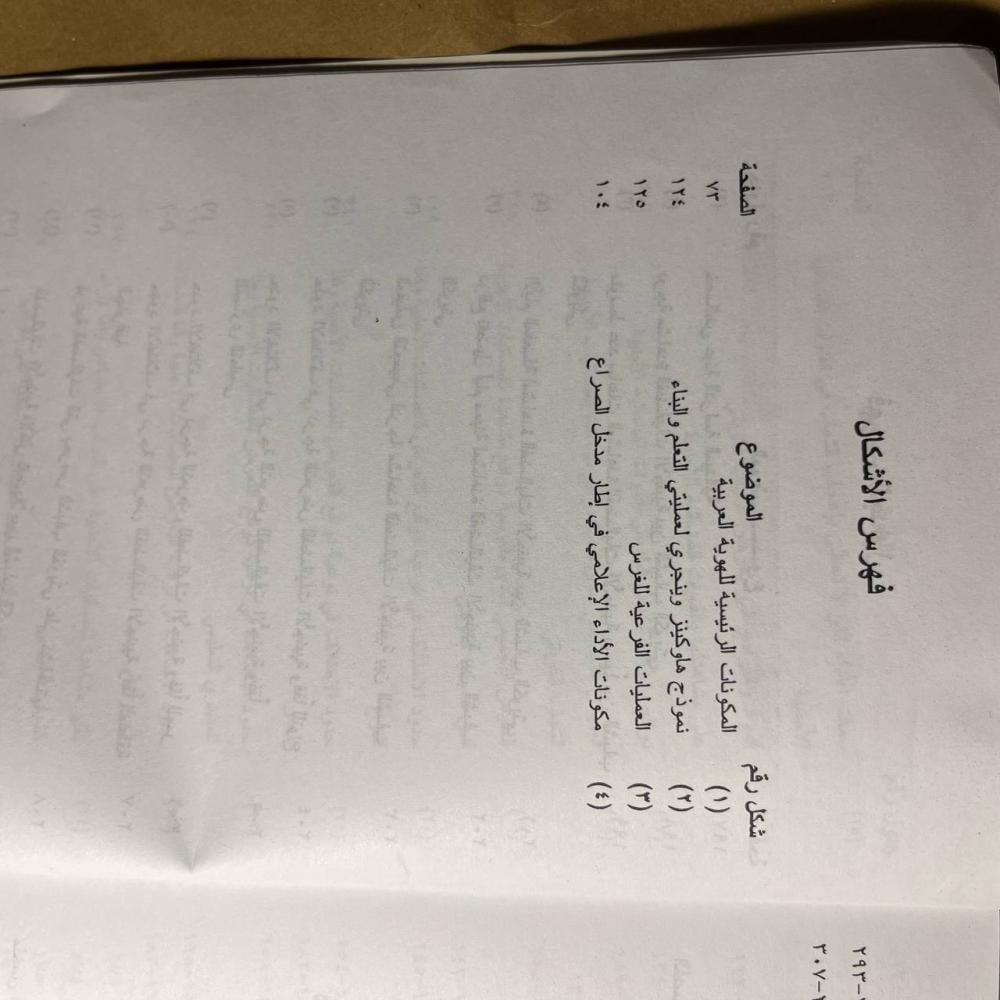 فهرس الأشكال
شكل رقم الموضوع الصفحة
(١) المكونات الرئيسية للهوية العربية ٧٣
(٢) نموذج هاوكينز وينجري لعمليتي التعلم والبناء ١٢٤
(٣) العمليات الفرعية للغرس ١٢٥
(٤) مكونات الأداء الإعلامي في إطار مدخل الصراع ١٠٤
٢٩٣-
٣٠٧-